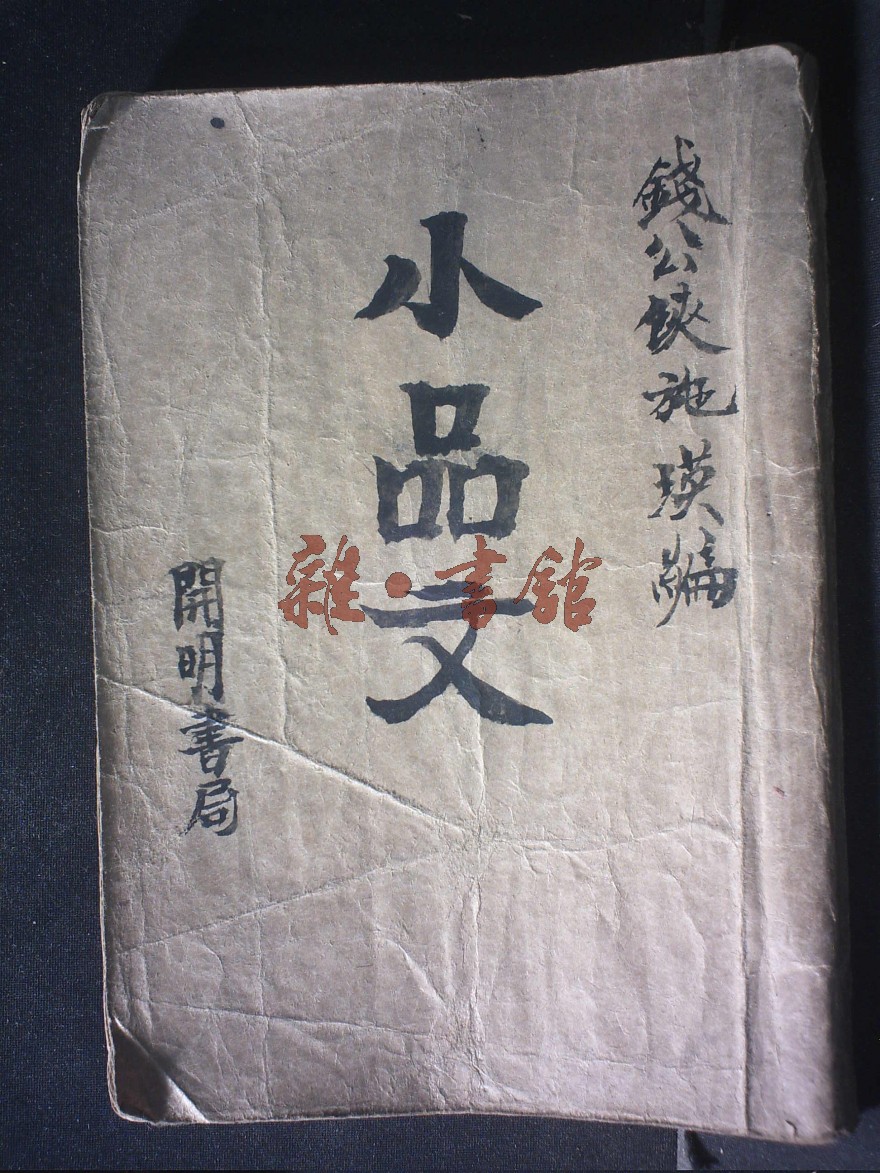 錢公俠施瑛編
小品文
開明書局
雜·書館